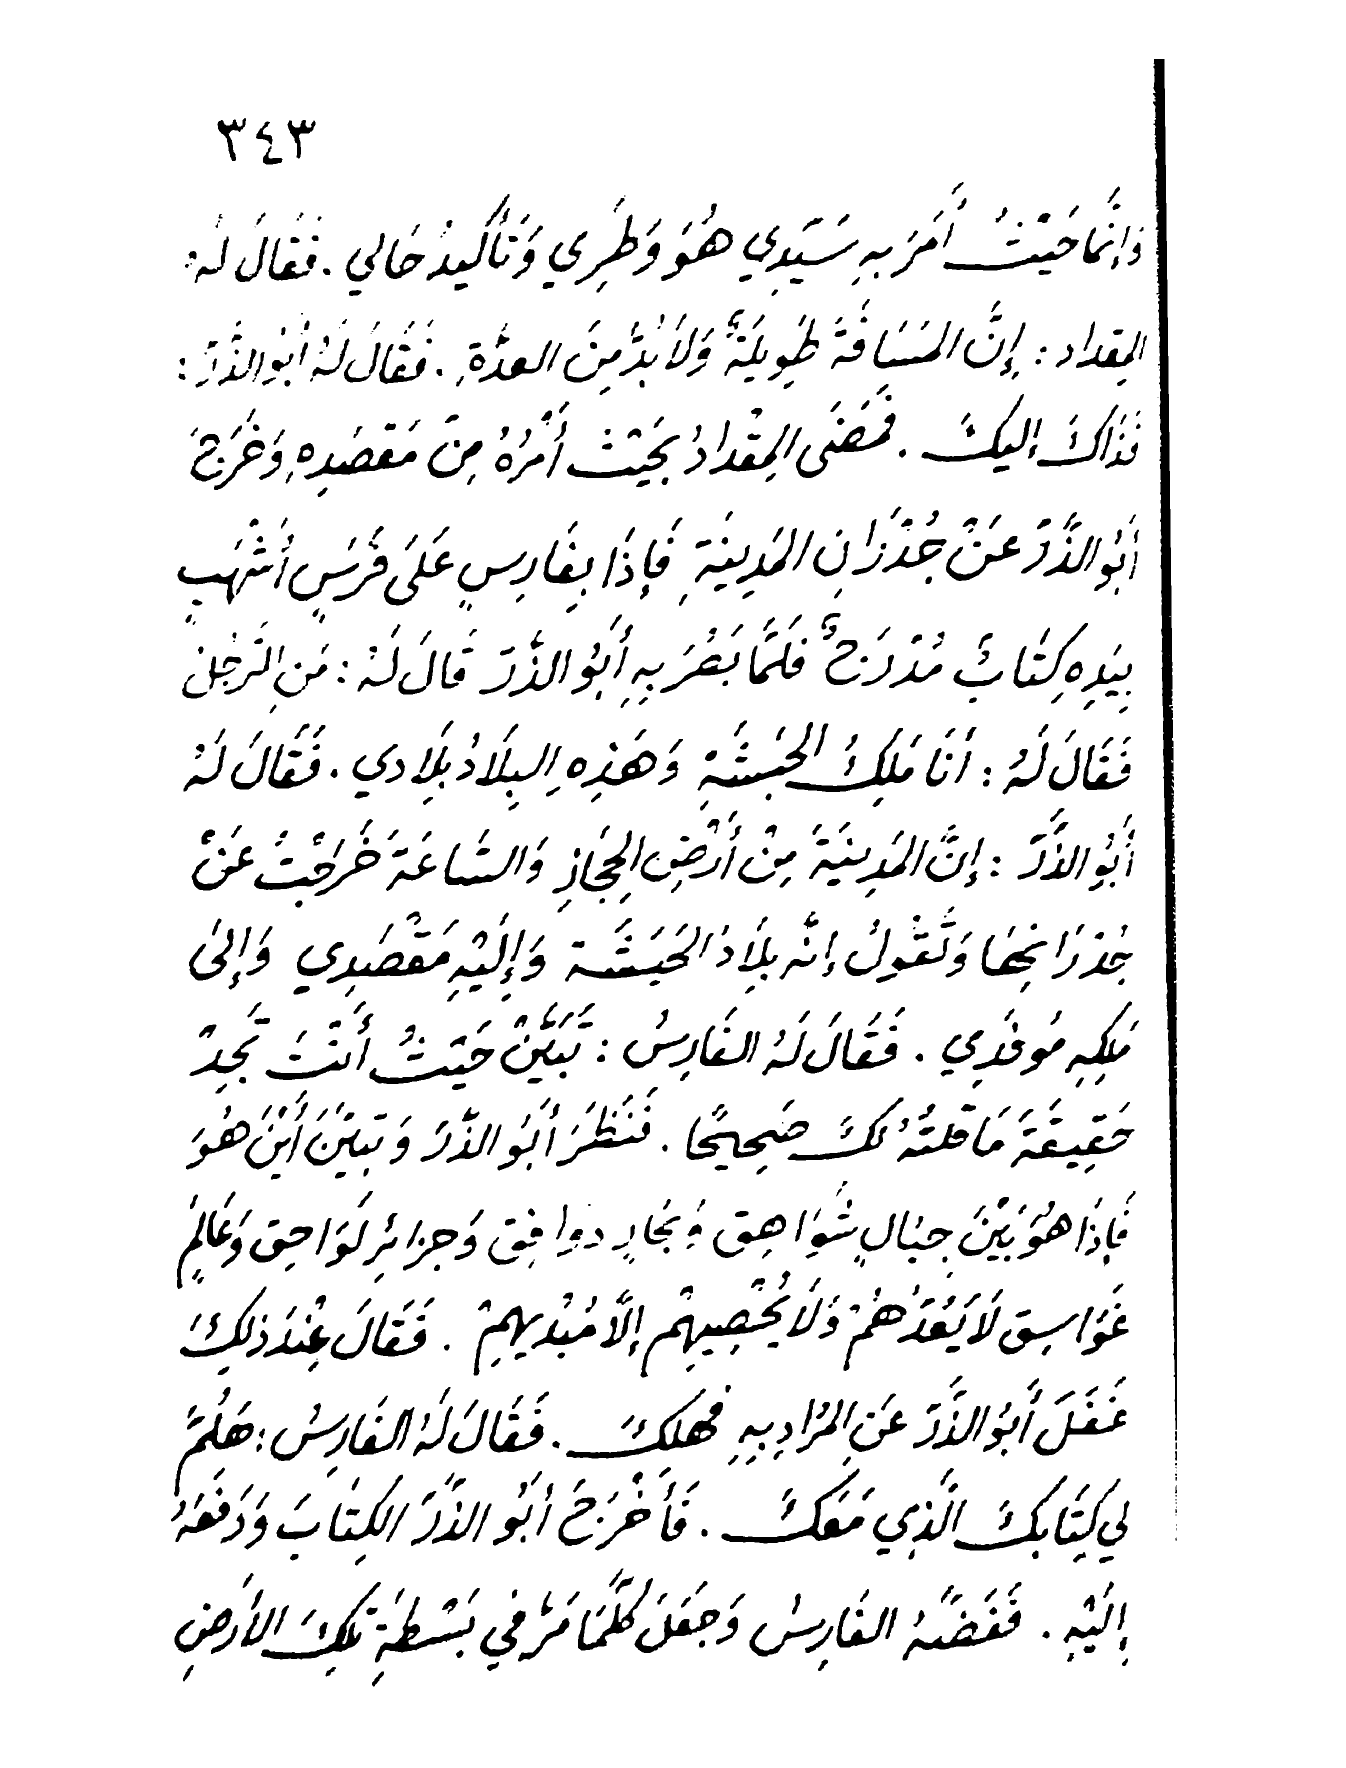 ٣٤٣
وَإِنَّمَا حَيْثُ أَمَرَ بِهِ سَيِّدِي هُوَ وَطَرِي وَتَأْكِيدُ حَالي . فَقَالَ لَهُ
المِقداد : إِنَّ المَسَافَةَ طَوِيلَةٌ وَلَا بُدَّ مِنَ العدَّةِ . فَقَالَ لَهُ أَبُو الذَّرِّ :
فَذَاكَ إِليكَ . فَمَضَى المِقْدادُ بِحَيْثُ أَمْرُهُ مِنْ مَقصَدِهِ وَخَرَجَ
أَبُو الذَّرِّ عَنْ جُدْرَانِ المَدِينَةِ فَإِذَا بِفَارِسٍ عَلَى فَرَسٍ أَشْهَبٍ
بِيَدِهِ كِتَابٌ مُدْرَجٌ فَلَمَّا بَصُرَ بِهِ أَبُو الذَّرِّ قَالَ لَهُ : مَنِ الرَّجُلُ
فَقَالَ لَهُ : أَنَا مَلِكُ الحَبَشَةِ وَهَذِهِ البِلَادُ بِلَادي . فَقَالَ لَهُ
أَبُو الذَّرِّ : إِنَّ المَدِينَةَ مِنْ أَرْضِ الحِجَازِ وَالسَّاعَةَ خَرَجْتُ عَنْ
جُدْرَانِهَا وَتَقُولُ إِنَّهُ بِلَادُ الحَبَشَة وَإِلَيْهِ مَقْصَدِي وَإِلىَ
مَلِكِهِ مُوفَدِي . فَقَالَ لَهُ الفَارِسُ : تَبَيَّنْ حَيْثُ أَنْتَ تَجِدْ
حَقِيقَةَ مَا قلتُهُ لَكَ صَحِيحًا . فَنَظَرَ أَبُو الذَّرِّ وَتبيَّنَ أَيْنَ هُوَ
فَإِذَا هُوَ بَيْنَ جِبَالٍ شَوَاهِق وَبِحَارٍ دوافِق وَجزائِر لَوَاحِق وَعَالَمٍ
غَوَاسِق لَا يَعُدُّهُمْ وَلَا يُحْصِيهِمْ إِلَّا مُبْدِيهِمْ . فَقَالَ عِنْدَ ذلِكَ
غَفَلَ أَبُو الذَّرِّ عَنِ المُرَادِ بِهِ فهلكَ . فَقَالَ لَهُ الفَارِسُ : هَلُمَّ
لي كِتَابكَ الَّذِي مَعَكَ . فَأَخْرَجَ أَبُو الذَّرِّ الكِتَابَ وَدَفَعَهُ
إِلَيْهِ . فَفَضَّهُ الفَارِسُ وَجَعَلَ كُلَّمَا مَرَّ في بَسْطَةِ تِلكَ الأَرْضِ